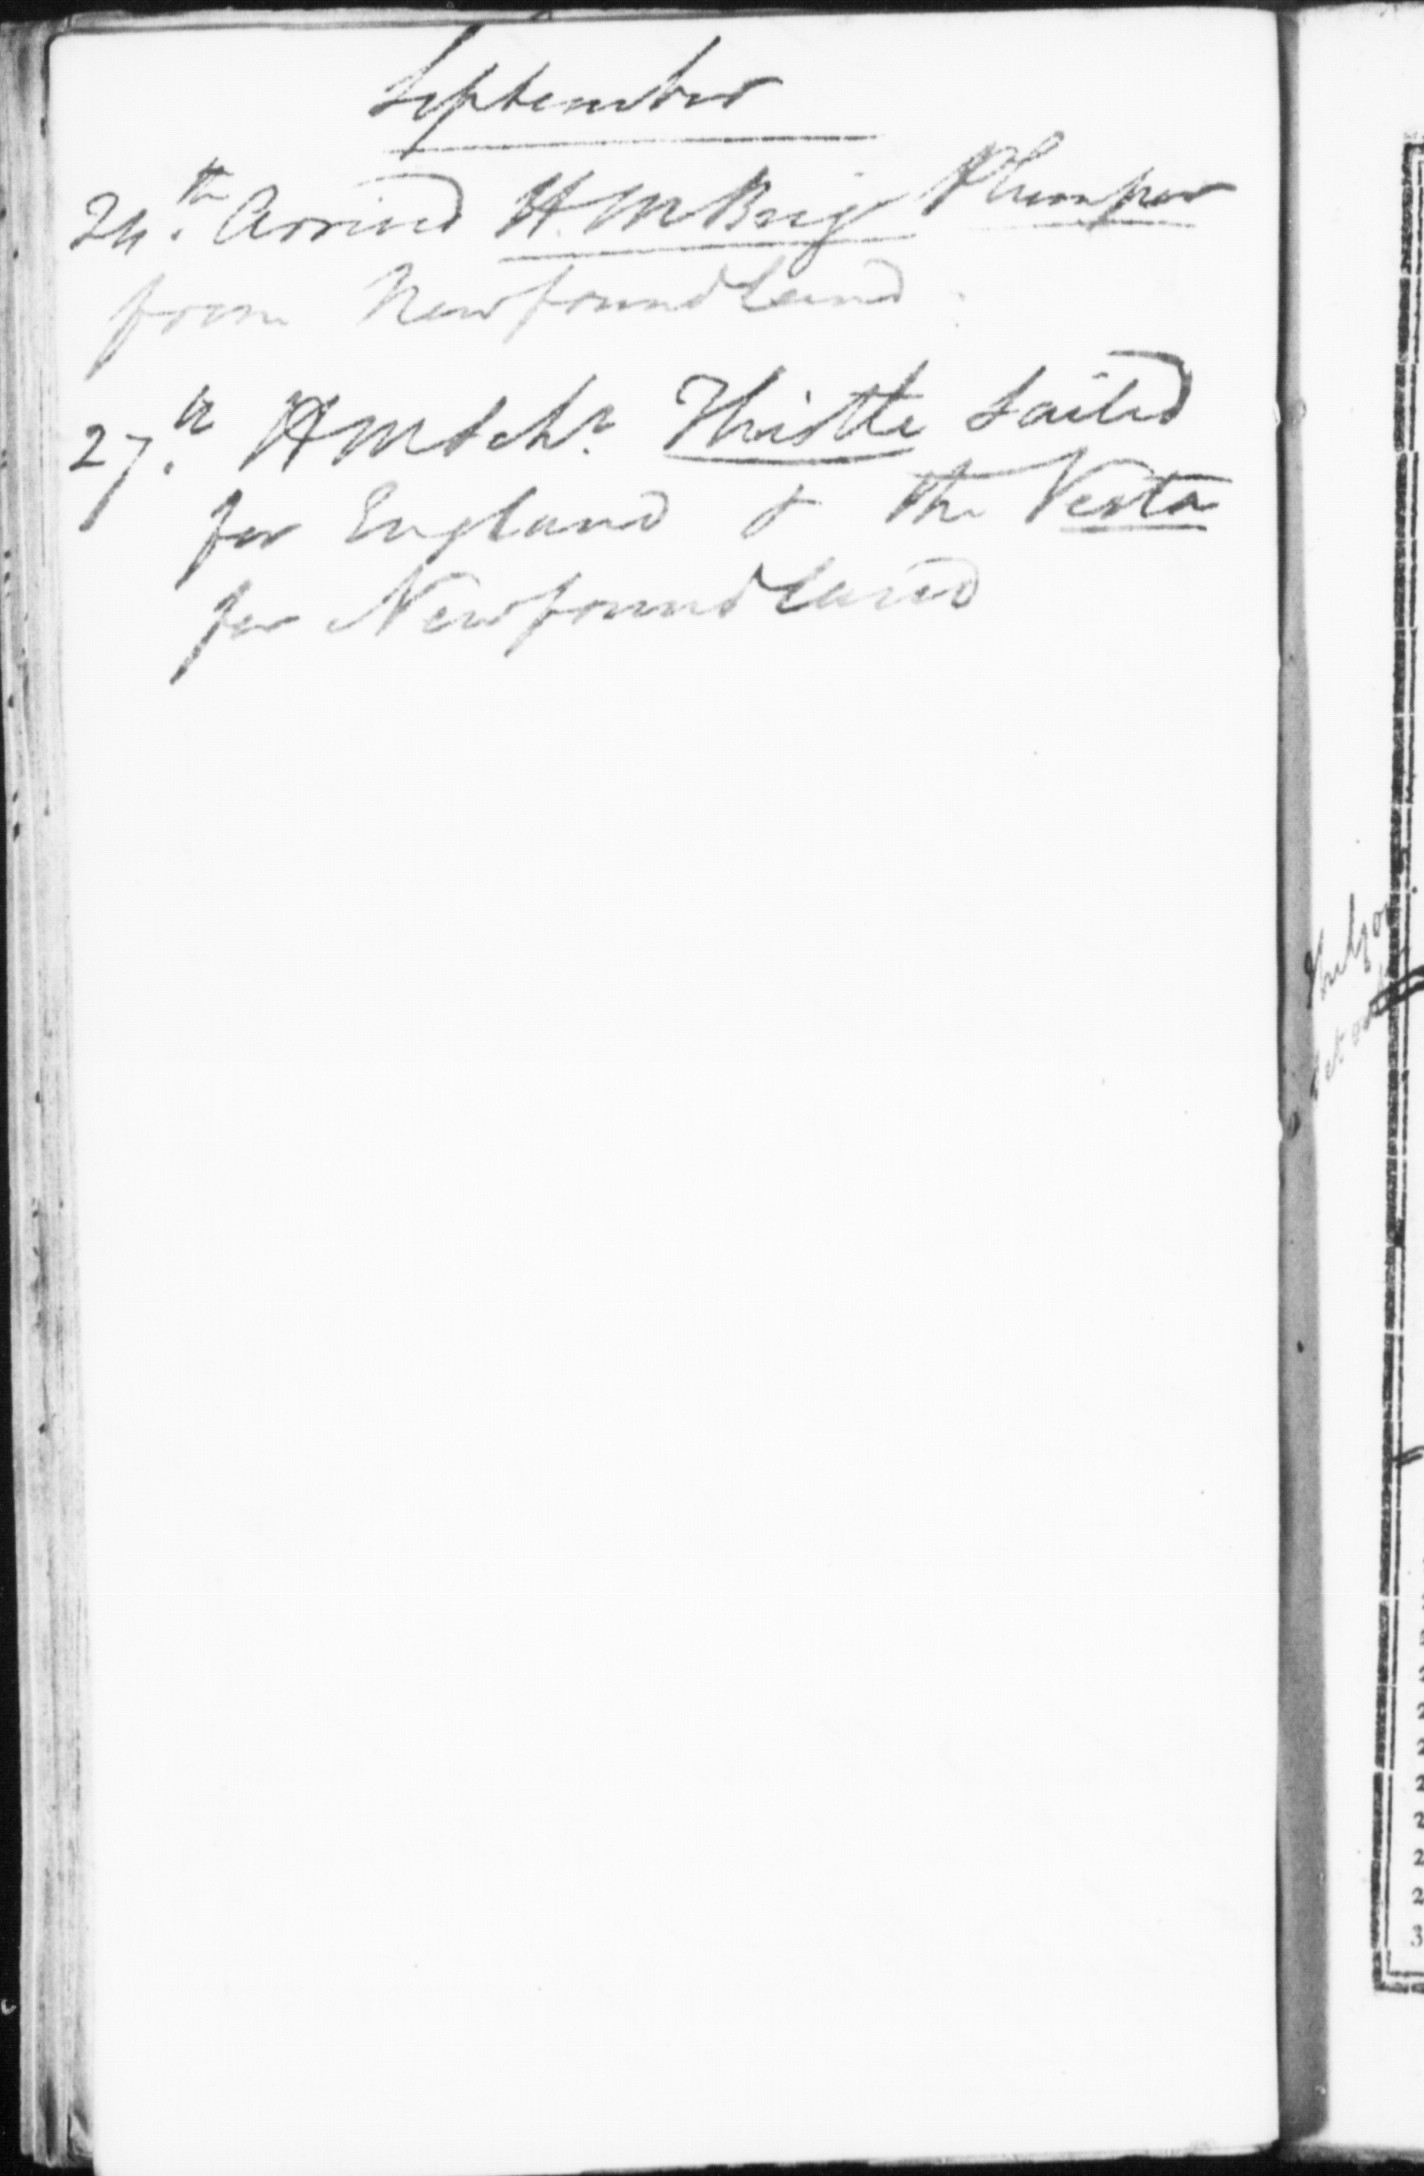 September
24.th Arrived H.M Brig Plumper
from Newfoundland.
27.th HM Schr. Thistle Sailed
for England & the Vesta
for Newfoundland
2
2
2
2
2
2
3